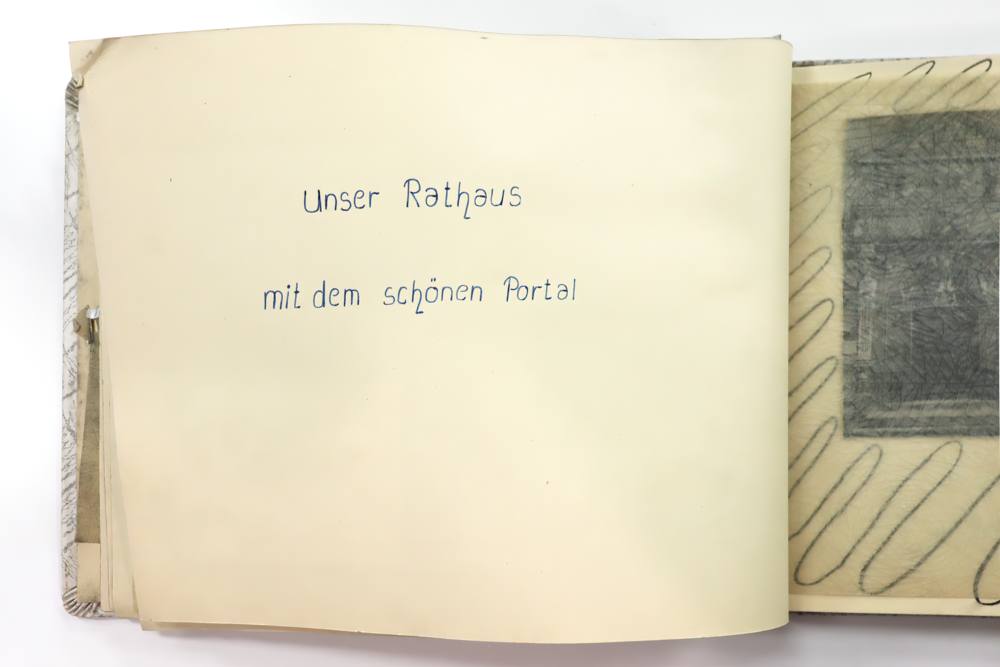 Unser Rathaus
mit dem schönen Portal